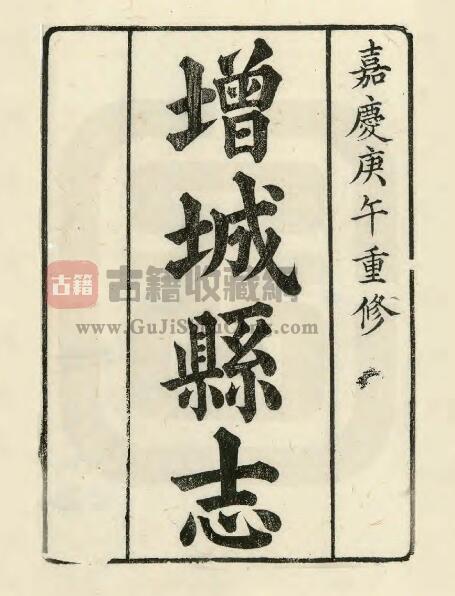 嘉慶庚午重修
增城縣志
古籍
古籍收藏網